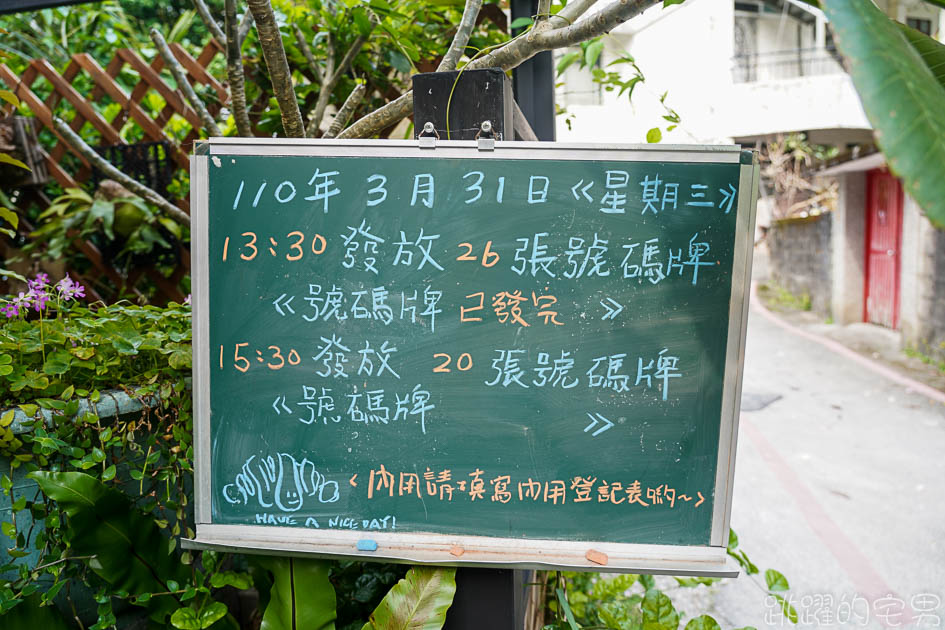 110年3月31日《星期三》
13:30發放26張號碼牌
《號碼牌已發完》
15:30發放20張號碼牌
《號碼牌 》
<內用請填寫內用登記表喲~>
HAVE A NICE DAY!
跳躍的宅男